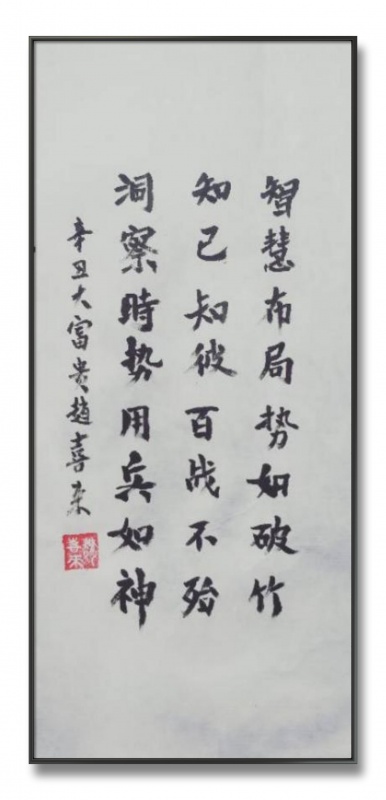 智慧布局势如破竹
知己知彼百战不殆
洞察時势用兵如神
辛丑大富贵趙喜来